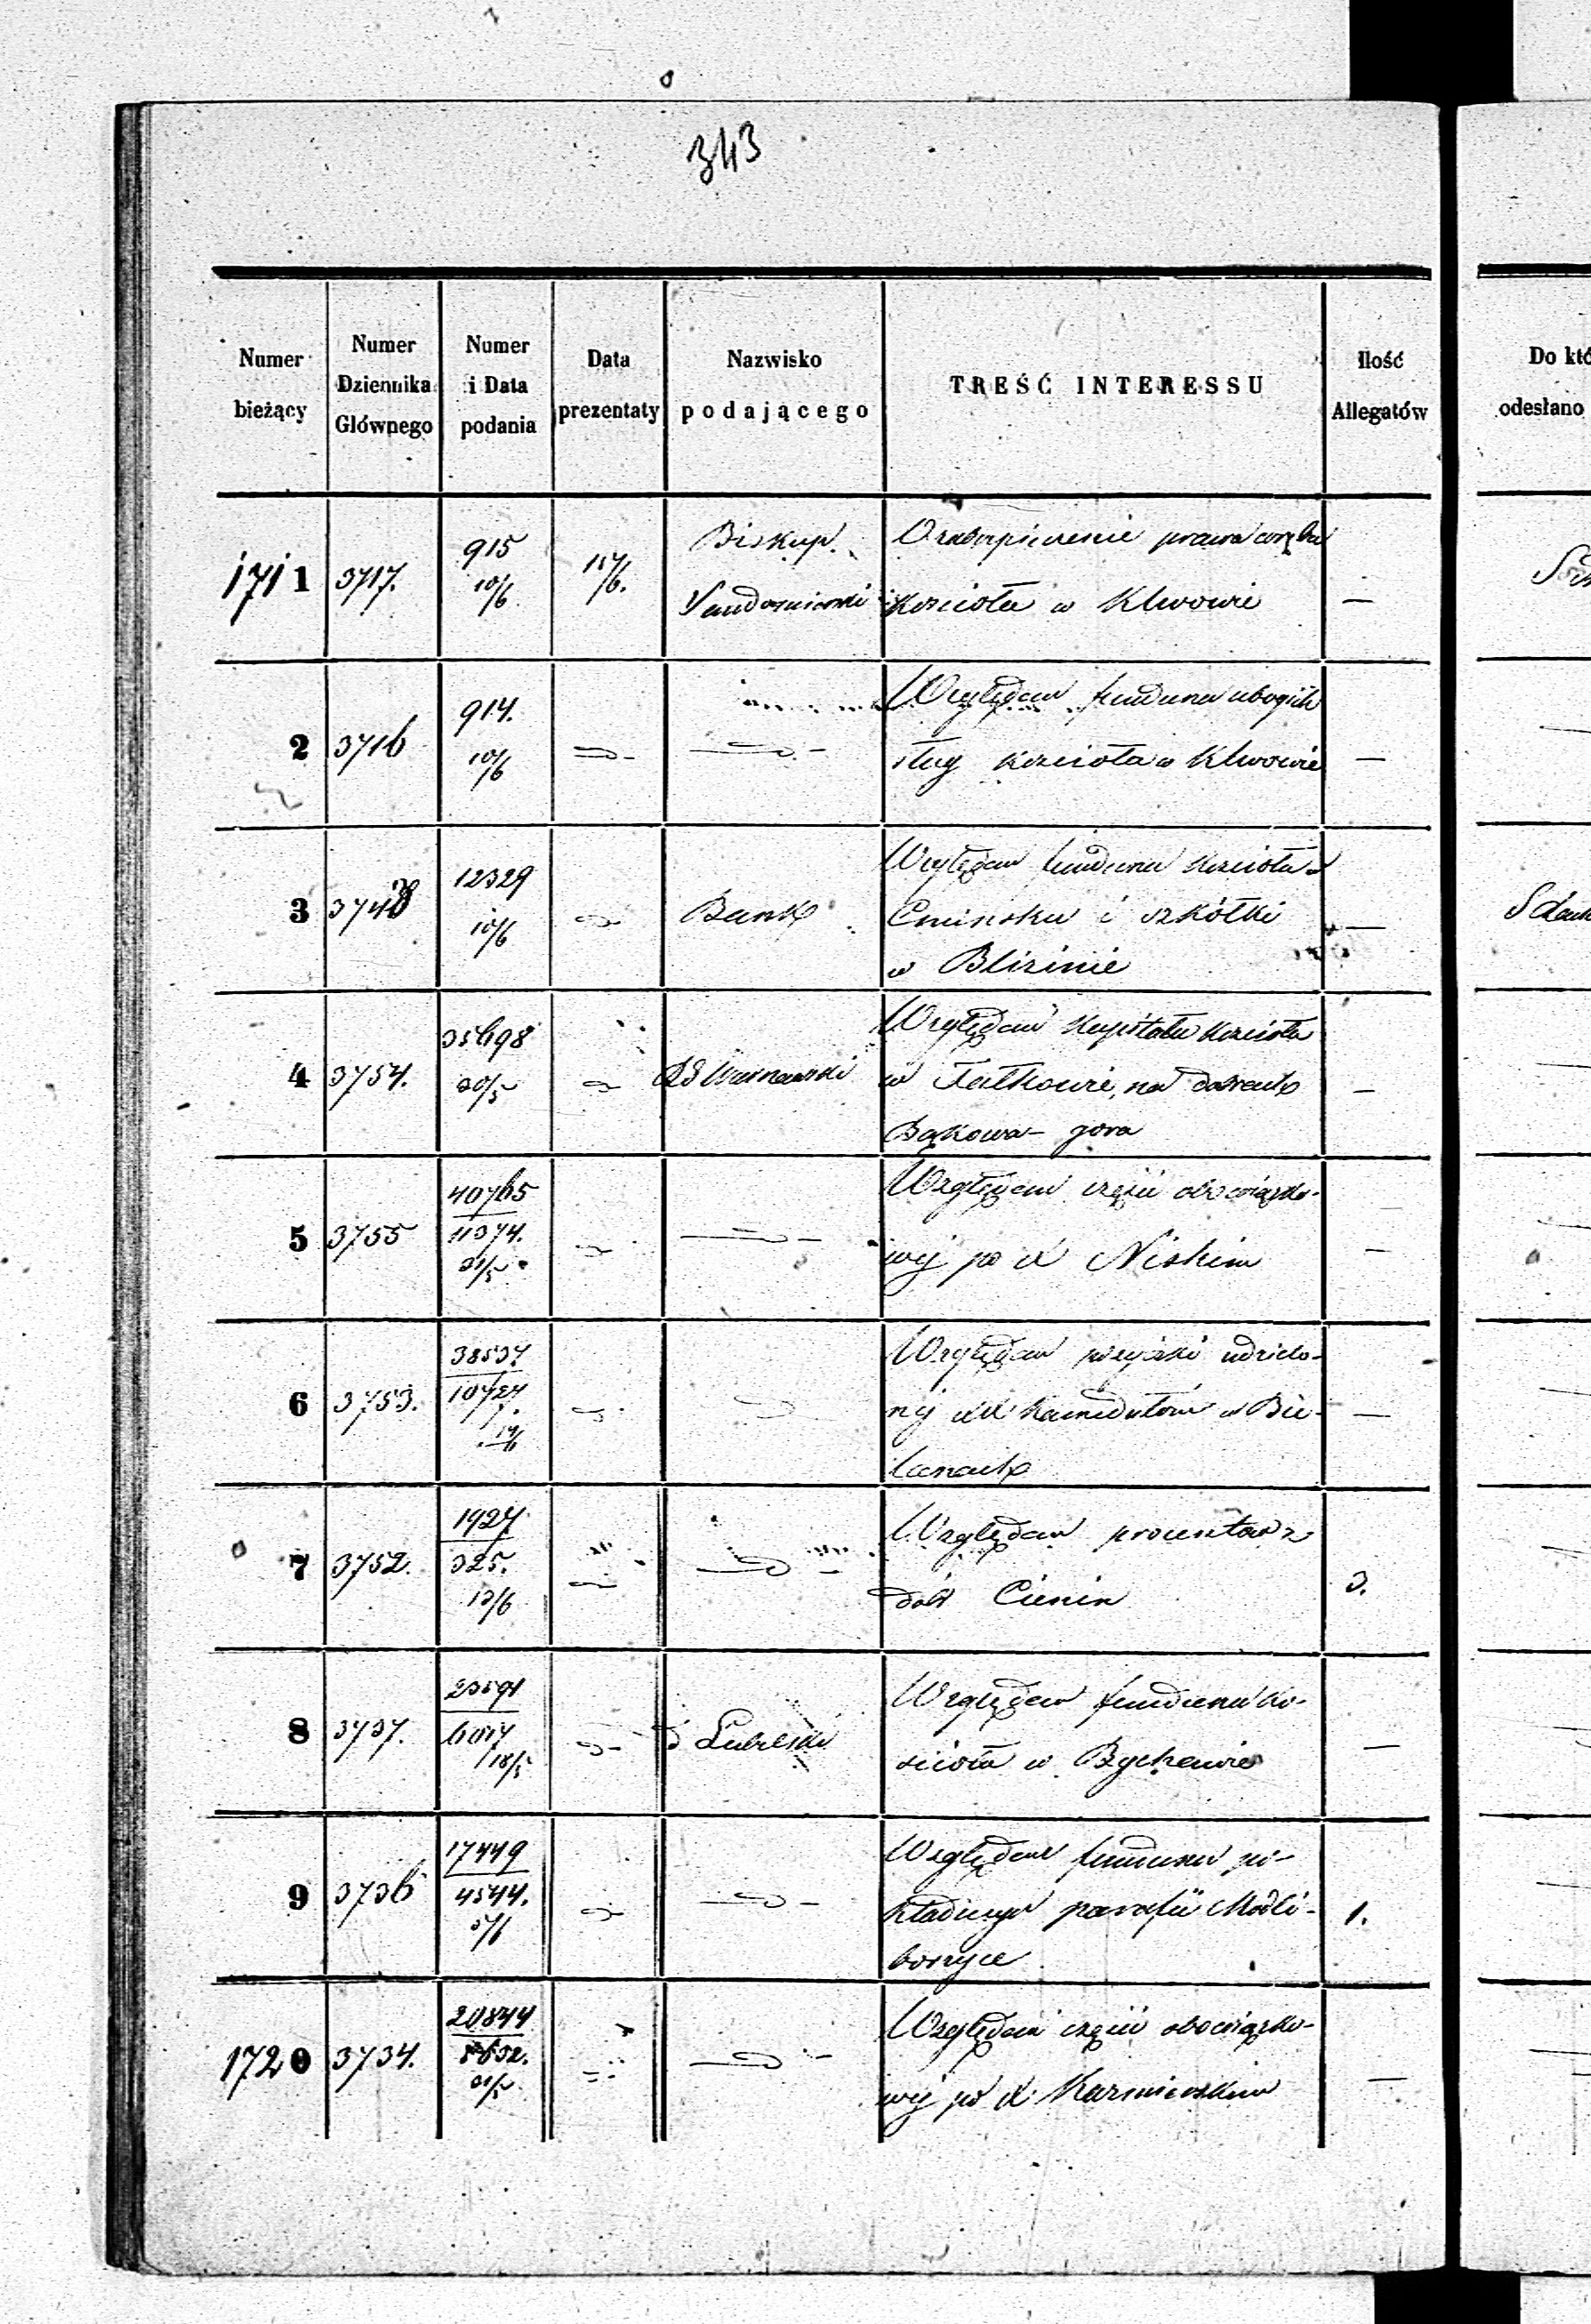 343
Numer bieżący
Numer Dziennika Głównego
Numer i Data podania
Data prezentaty
Nazwisko podającego
TREŚĆ INTERESSU
Ilość Allegatów
Do któ
odesłano
1711 3717. 915 10/6 15/6. Biskup Sandomierski
prawa wrębu
kościoła w Klwowie —
2 3716 914. 10/6
Względem funduszu ubogich
sług kościoła w Klwowie —
3 3748 12329 10/6 Bank
Względem funduszu kościoła w
Cmińsku i szkółki
w Bliżinie —
4 3754. 35698 20/5 Warszawski
Względem kapitału kościoła
w Fałkowie, na dobrach
Bąkowa-góra —
5 3755 40765 11374. 31/5
Względem części obowiązko-
wej po X Niskim —
6 3753. 38537 10727
Względem pożyczki udzielo-
nej XX Kamedułom w Bie-
lanach —
7 3752. 1927 325. 13/6
Względem procentów z
dóbr Cienin 3.
8 3737. 23591 6017 18/5 Lubelski
Względem funduszu ko-
ścioła w Bychawie —
9 3736 17449 4544. 5/6
Względem funduszu po-
kładnego parafii Modli-
borzyce 1.
1720 3734. 20844 5632. 31/5
Względem części obowiązko-
wej po X Kazmierskim —